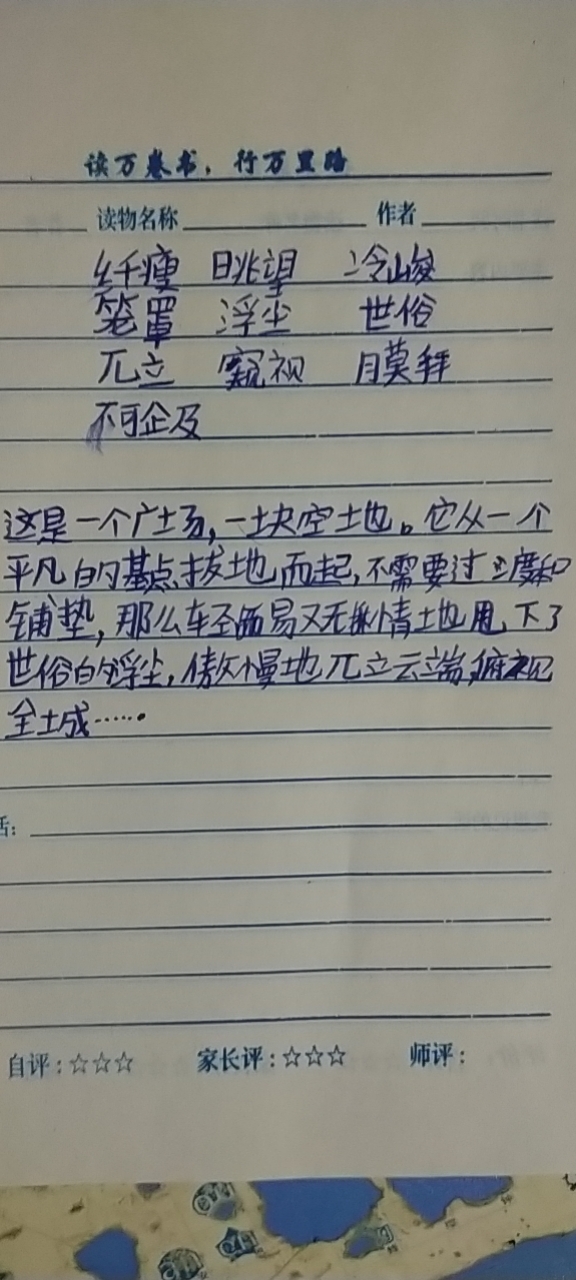 读万卷书，行万里路
读物名称 作者
纤瘦 眺望 冷峻
笼罩 浮尘 世俗
兀立 窥视 膜拜
不可企及
这是一个广场，一块空地。它从一个
平凡的基点拔地而起，不需要过渡和
铺垫，那么轻而易又无情地甩下了
世俗的浮尘，傲慢地兀立云端，俯视
全城……
话：
自评：☆☆☆ 家长评：☆☆☆ 师评：